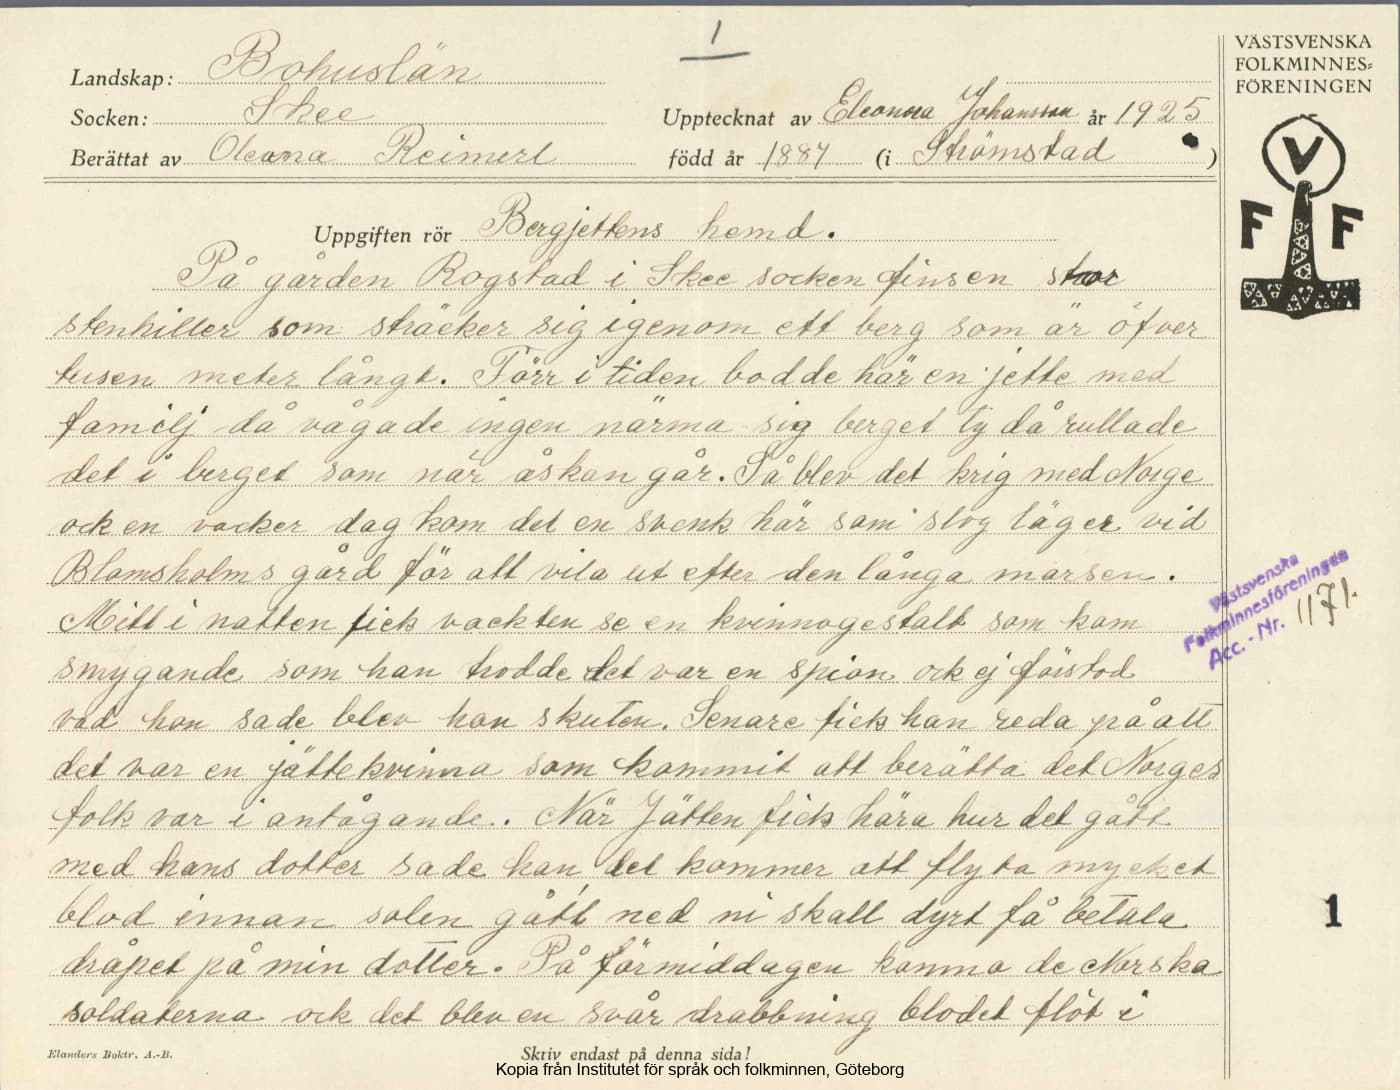 1
VÄSTSVENSKA
FOLKMINNES=
FÖRENINGEN
Landskap: Bohuslän
Socken: Skee
Upptecknat av Eleonora Johansson år 1925
Berättat av Oleana Reimert
född år 1887 (i Strömstad )
V
F F
Uppgiften rör Bergjettens hemd.
På gården Rogstad i Skee socken finsen stor
stenhiller som sträcker sig igenom ett berg som är öfver
tusen meter långt. Förr i tiden bodde här en jette med
familj då vågade ingen närma sig berget ty då rullade
det i berget som när åskan går. Så blev det krig med Norge
ock en vacker dag kom det en svensk här som slog läger vid
Blomsholms gård för att vila ut efter den långa marsen.
Mitt i natten fick vackten se en kvinnogestalt som kom
smygande som han trodde det var en spion ock ej förstod
vad hon sade blev hon skuten. Senare fick han reda på att
det var en jättekvinna som kommit att berätta det Norges
folk var i antågande. När Jätten fick höra hur det gått
med hans dotter sade han det kommer att flyta mycket
blod innan solen gått ned ni skall dyrt få betala
dråpet på min dotter. På förmiddagen komma de Norska
soldaterna ock det blev en svår drabbning blodet flöt i
Västsvenska
Folkminnesföreningen
Acc.-Nr. 1171.
1
Elanders Boktr. A.-B.
Skriv endast på denna sida!
Kopia från Institutet för språk och folkminnen, Göteborg